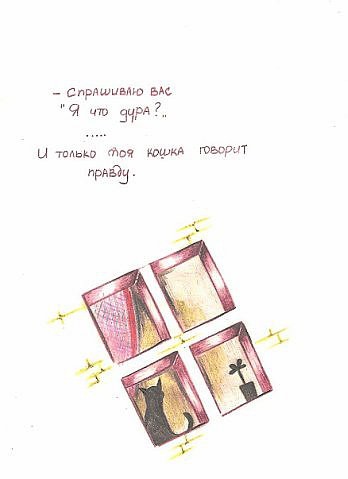 - Спрашиваю вас
"Я что дура?"
.....
И только моя кошка говорит
правду.